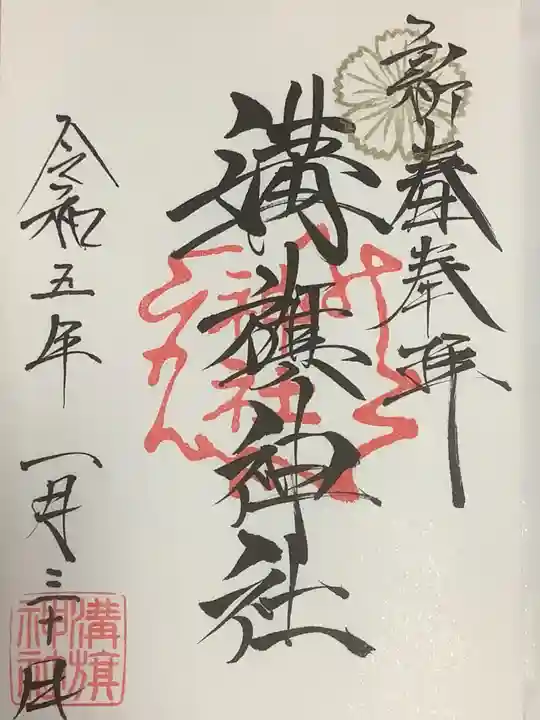 新春奉拝
溝旗神社
令和五年 一月三十日
神社
溝旗
神社